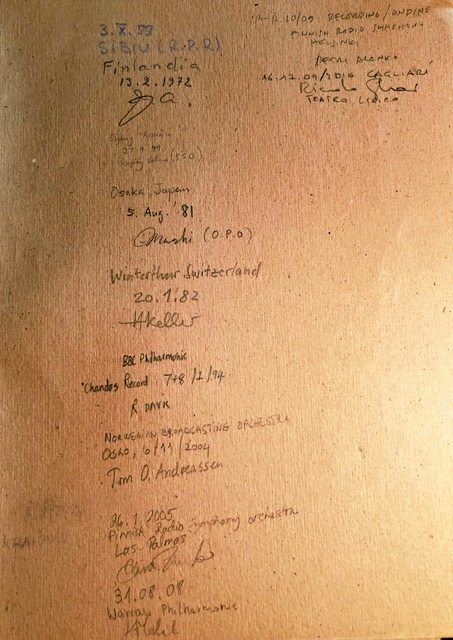 3.X.59
SIBIU (R.P.R)
Finlandia
13.2.1972
Sydney
27
Sydney (SSO)
Osaka, Japan
5. Aug. '81
(O.P.O)
Winterthur Switzerland
20.1.82
HKeller
BBC Philharmonic
Chandos Record 7+8/1/94
R. DAVIS
NORWEGIAN BROADCASTING ORCHESTRA
OSLO, 6/11/2004
Tom O. Andreassen
26.1.2005
Finnish Radio Symphony orchestra
Las Palmas
31.08.08
Warsaw Philharmonic
10/09 RECORDING/ONDINE
FINNISH RADIO SYMPHONY
HELSINKI
PETRI ALANKO
16.17.09/2016 CAGLIARI
TEATRO LIRICO